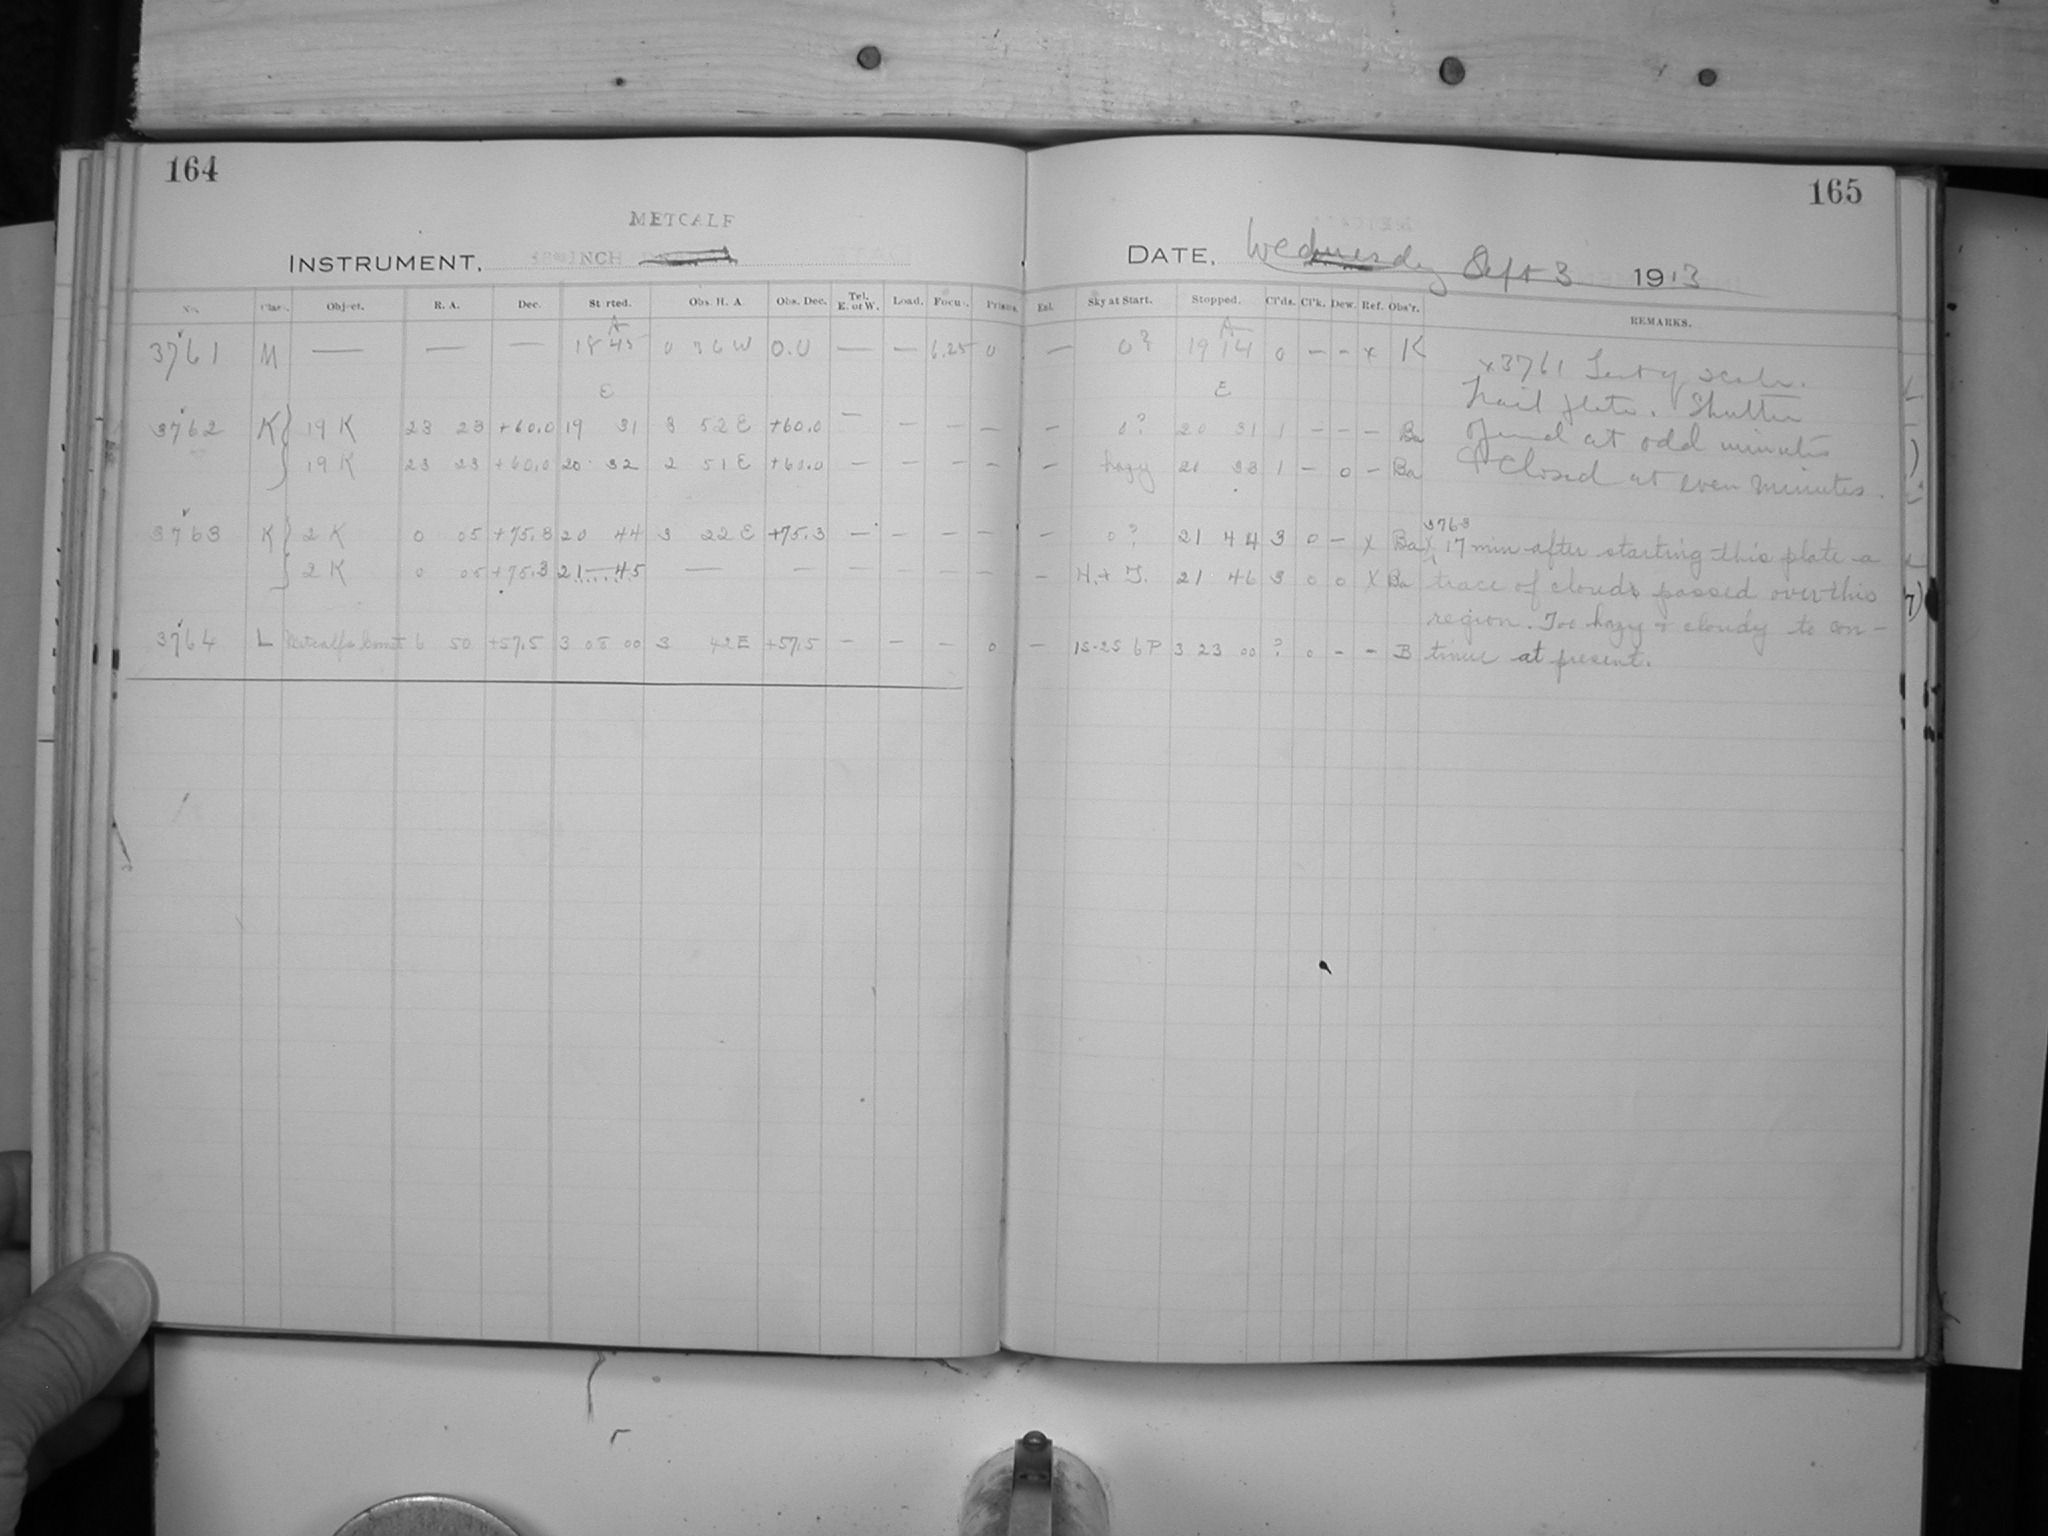 164
165
METCALF
INSTRUMENT, INCH
DATE, Wednesday Sept 3 1913
No. Class. Object. R. A. Dec. Started. Obs. H. A. Obs. Dec. Tel. E. or W. Load. Focus. Prisms. Exl. Sky at Start. Stopped. Cl'ds. Cl'k. Dew. Ref. Obs'r. REMARKS.
A A
3761 M — — — 18 45 0 36 W 0.0 — — 6.25 0 — 0? 19 14 0 — — x K
E E
3762 K 19 K 23 23 +60.0 19 31 3 52 E +60.0 — — — — — 0? 20 31 1 — — — Ba
19 K 23 23 +60.0 20 32 2 51 E +60.0 — — — — — hazy 20 33 1 — 0 — Ba
3763 K 2 K 0 05 +75.3 20 44 3 22 E +75.3 — — — — — 0? 21 44 3 0 — x Ba
2 K 0 05 +75.3 21 45 — — — — — — — H. + T. 21 46 3 0 0 x Ba
3764 L Metcalfs Comet 6 50 +57.5 3 08 00 3 42 E +57.5 — — — 0 — 15-25 6P 3 23 00 ? 0 — — B
x3761 scale.
Trail plate. Shutter
opened at odd minutes
& closed at even minutes.
3763
x 17 min after starting this plate a
trace of clouds passed over this
region. Too hazy & cloudy to con-
tinue at present.